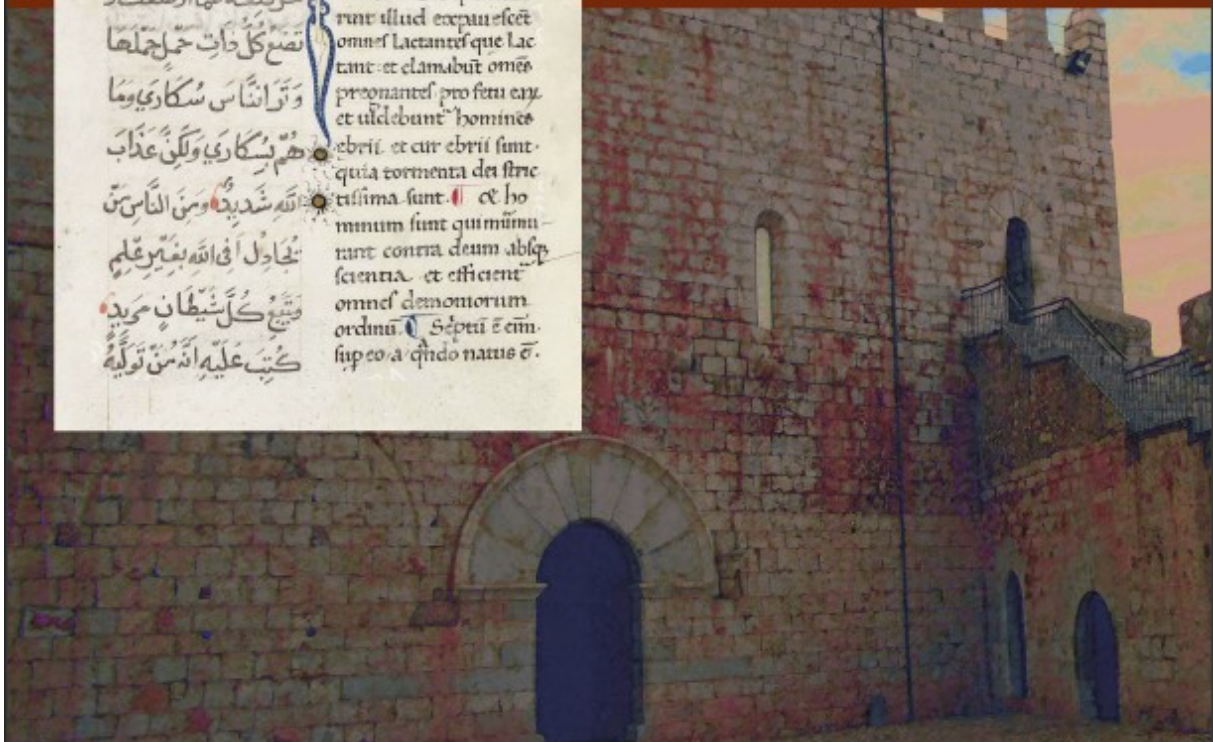 تَضَعُ كُلُّ ذَاتِ حَمْلٍ حَمْلَهَا
وَتَرَا النَّاسَ سُكَارَي وَمَا
هُمْ بِسُكَارَي وَلَكِنَّ عَذَابَ
اللهِ شَدِيدٌ وَمِنَ النَّاسِ مَنْ
يُجَادِلُ فِي اللهِ بِغَيْرِ عِلْمٍ
وَيَتَّبِعُ كُلَّ شَيْطَانٍ مَرِيدٍ
كُتِبَ عَلَيْهِ أَنَّهُ مَنْ تَوَلَّيهُ
rint illud expauescēt
omnes Lactantes que Lac
tant et clamabūt omēs
pregnantes pro fetu
et uidebunt homines
ebrii et cur ebrii sunt
quia tormenta dei stric
tissima sunt. ho
minum sunt qui
rant contra deum absq
scientia et efficient
omnes demoniorum
ordinū. Septū ē eīm
sup eo a qn̄do natus ē.